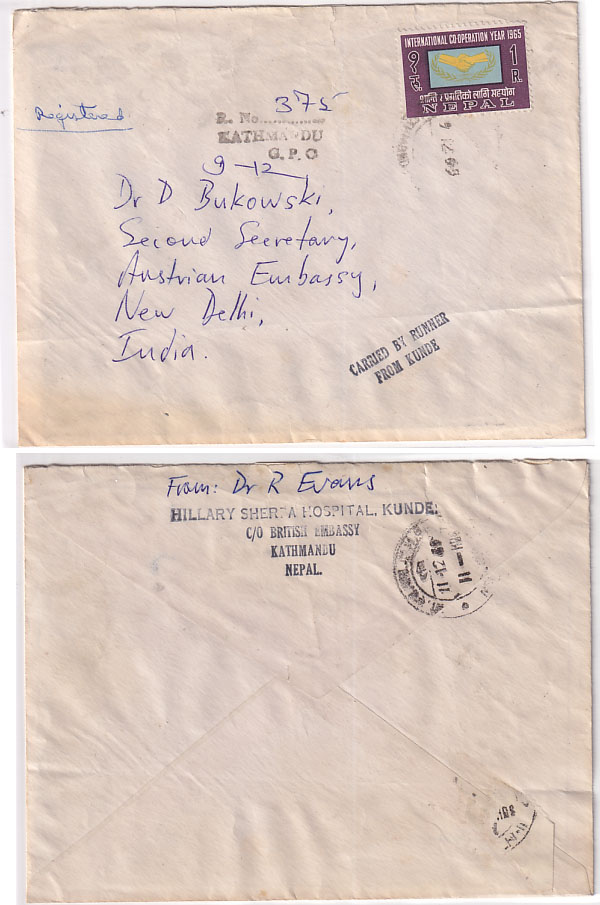 INTERNATIONAL CO-OPERATION YEAR 1965
१ रु. 1 R.
शान्ति र प्रगतिको लागि सहयोग
NEPAL
Registered
375
R. No.
KATHMANDU
G. P. O
9-12
Dr D Bukowski,
Second Secretary,
Austrian Embassy,
New Delhi,
India.
CARRIED BY RUNNER
FROM KUNDE
From: Dr R Evans
HILLARY SHERPA HOSPITAL, KUNDE.
C/O BRITISH EMBASSY
KATHMANDU
NEPAL.
11-12-69